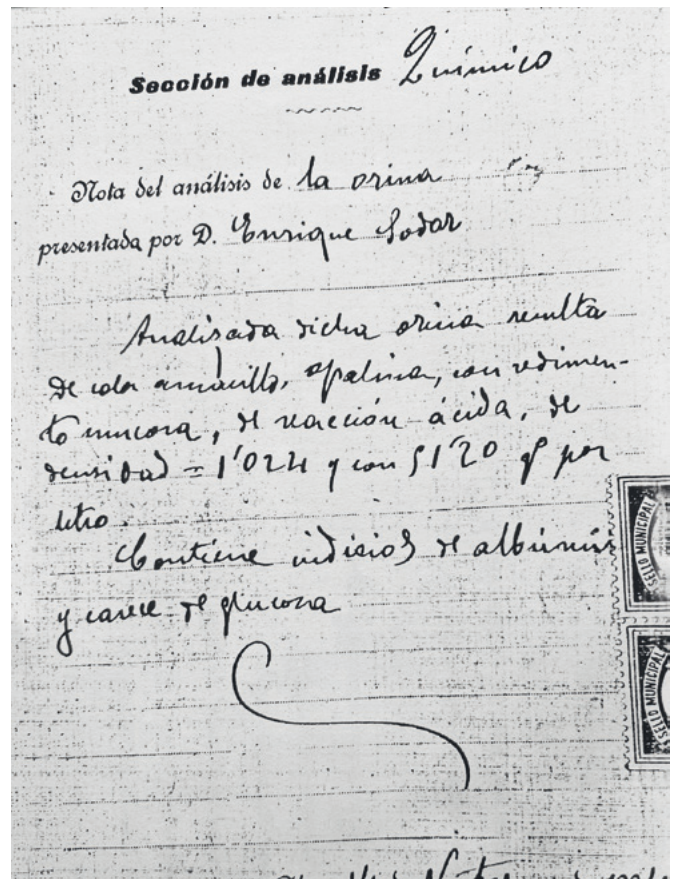 Sección de análisis Químico
Nota del análisis de la orina
presentada por D. Enrique Sodar
Analizada dicha orina resulta
de color amarillo, opalina, con sedimen-
to mucoso, de reacción ácida, de
densidad = 1'024 y con 51'20 gr por
litro.
Contiene indicios de albúmina
y carece de glucosa
SELLO MUNICIPAL
SELLO MUNICIPAL